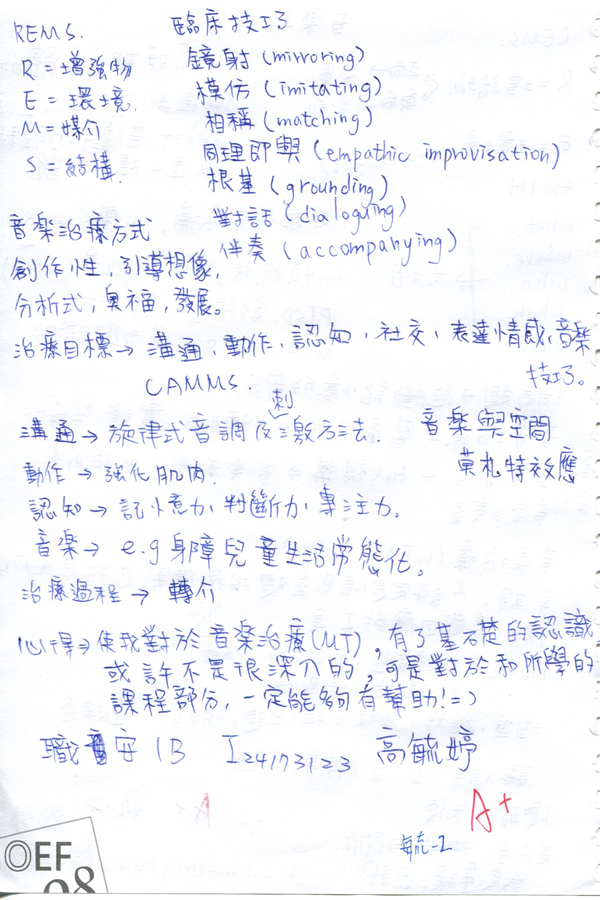 REMS.
R = 增強物
E = 環境.
M = 媒介
S = 結構.
臨床技巧
鏡射 (mirroring)
模仿 (imitating)
相稱 (matching)
同理即興 (empathic improvisation)
根基 (grounding)
對話 (dialoguing)
伴奏 (accompanying)
音樂治療方式
創作性, 引導想像,
分析式, 奧福, 發展。
治療目標→ 溝通, 動作, 認知, 社交, 表達情感, 音樂
技巧。
CAMMS.
溝通→ 旋律式音調及刺激方法.
動作→ 強化肌肉.
認知→ 記憶力, 判斷力, 專注力.
音樂→ e.g 身障兒童生活常態化。
治療過程→ 轉介
音樂與空間
莫札特效應
心得⇒ 使我對於音樂治療(MT), 有了基礎的認識
或許不是很深入的, 可是對於和所學的
課程部分, 一定能夠有幫助!=)
職安1B I24173123 高毓婷
A+
毓-2
OEF
08